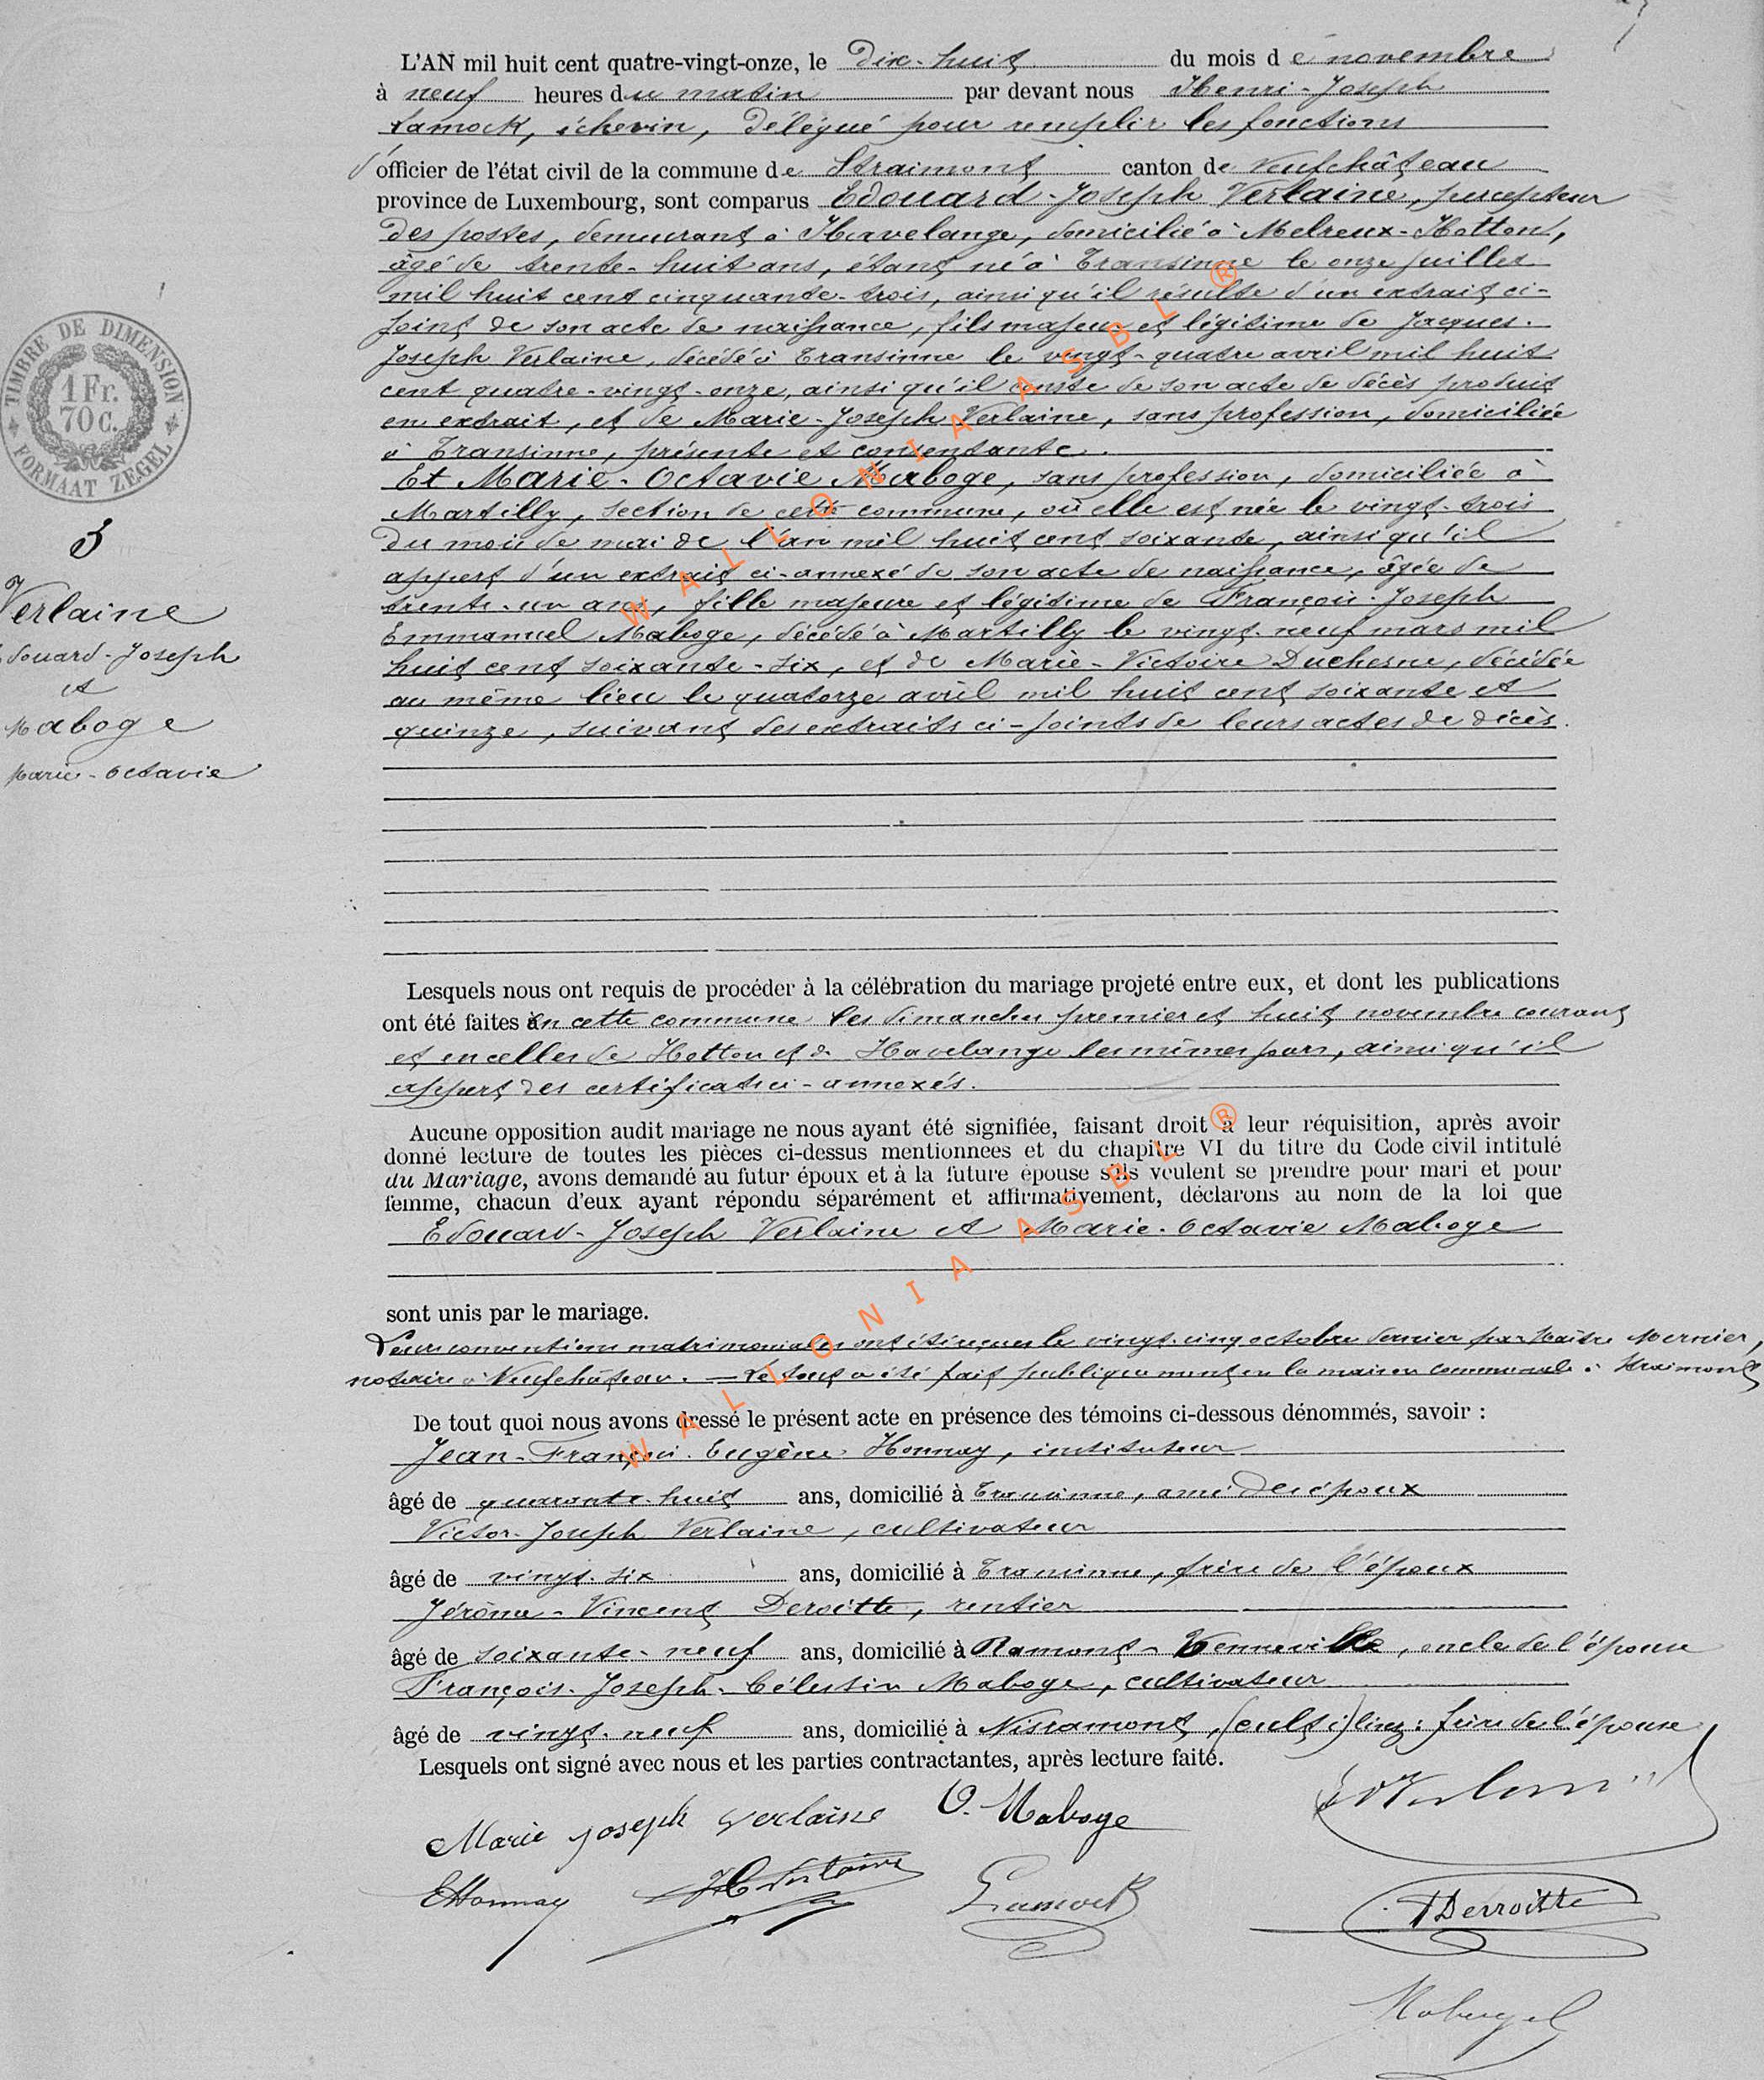 L'AN mil huit cent quatre-vingt-onze, le Dix-huit du mois de novembre
à neuf heures du matin par devant nous Henri-Joseph
Lamock, échevin, délégué pour remplir les fonctions
d'officier de l'état civil de la commune de Straimont canton de Neufchâteau
province de Luxembourg, sont comparus Edouard-Joseph Verlaine, percepteur
des postes, demeurant à Havelange, domicilié à Melreux-Hotton,
âgé de trente-huit ans, étant né à Transinne le onze juillet
mil huit cent cinquante-trois, ainsi qu'il résulte d'un extrait ci-
joint de son acte de naissance, fils majeur et légitime de Jacques-
Joseph Verlaine, décédé à Transinne le vingt-quatre avril mil huit
cent quatre-vingt-onze, ainsi qu'il conste de son acte de décès produit
en extrait, et de Marie-Joseph Verlaine, sans profession, domiciliée
à Transinne, présente et consentante.
Et Marie-Octavie Maboge, sans profession, domiciliée à
Martilly, section de cette commune, où elle est née le vingt-trois
du mois de mai de l'an mil huit cent soixante, ainsi qu'il
appert d'un extrait ci-annexé de son acte de naissance, âgée de
trente-un ans, fille majeure et légitime de François-Joseph
Emmanuel Maboge, décédé à Martilly le vingt-neuf mars mil
huit cent soixante-six, et de Marie-Victoire Duchesne, décédée
au même lieu le quatorze avril mil huit cent soixante et
quinze, suivant des extraits ci-joints de leurs actes de décès.
TIMBRE DE DIMENSION
1 Fr.
70 C.
FORMAAT ZEGEL
3
Verlaine
Edouard-Joseph
et
Maboge
Marie-Octavie
Lesquels nous ont requis de procéder à la célébration du mariage projeté entre eux, et dont les publications
ont été faites en cette commune les dimanches premier et huit novembre courant
et en celles de Hotton et de Havelange les mêmes jours, ainsi qu'il
appert des certificats ci-annexés.
Aucune opposition audit mariage ne nous ayant été signifiée, faisant droit à leur réquisition, après avoir
donné lecture de toutes les pièces ci-dessus mentionnees et du chapitre VI du titre du Code civil intitulé
du Mariage, avons demandé au futur époux et à la future épouse s'ils veulent se prendre pour mari et pour
femme, chacun d'eux ayant répondu séparément et affirmativement, déclarons au nom de la loi que
Edouard-Joseph Verlaine et Marie-Octavie Maboge
sont unis par le mariage.
Leurs conventions matrimoniales ont été reçues le vingt-cinq octobre dernier par Maître Mernier,
notaire à Neufchâteau. — Le tout a été fait publiquement en la maison communale à Straimont
De tout quoi nous avons dressé le présent acte en présence des témoins ci-dessous dénommés, savoir :
Jean-François-Eugène Honnay, instituteur
âgé de quarante-huit ans, domicilié à Transinne, ami des époux
Victor-Joseph Verlaine, cultivateur
âgé de vingt-six ans, domicilié à Transinne, frère de l'époux
Jérôme-Vincent Deroitte, rentier
âgé de soixante-neuf ans, domicilié à Ramont-Tenneville, oncle de l'épouse
François-Joseph-Célestin Maboge, cultivateur
âgé de vingt-neuf ans, domicilié à Nisramont, (cult i) lisez : frère de l'épouse
Lesquels ont signé avec nous et les parties contractantes, après lecture faite.
Marie Joseph Verlaine O. Maboge
EHonnay Verlaine Lamock Derroitte
WALLONIA ASBL ®
WALLONIA ASBL ®